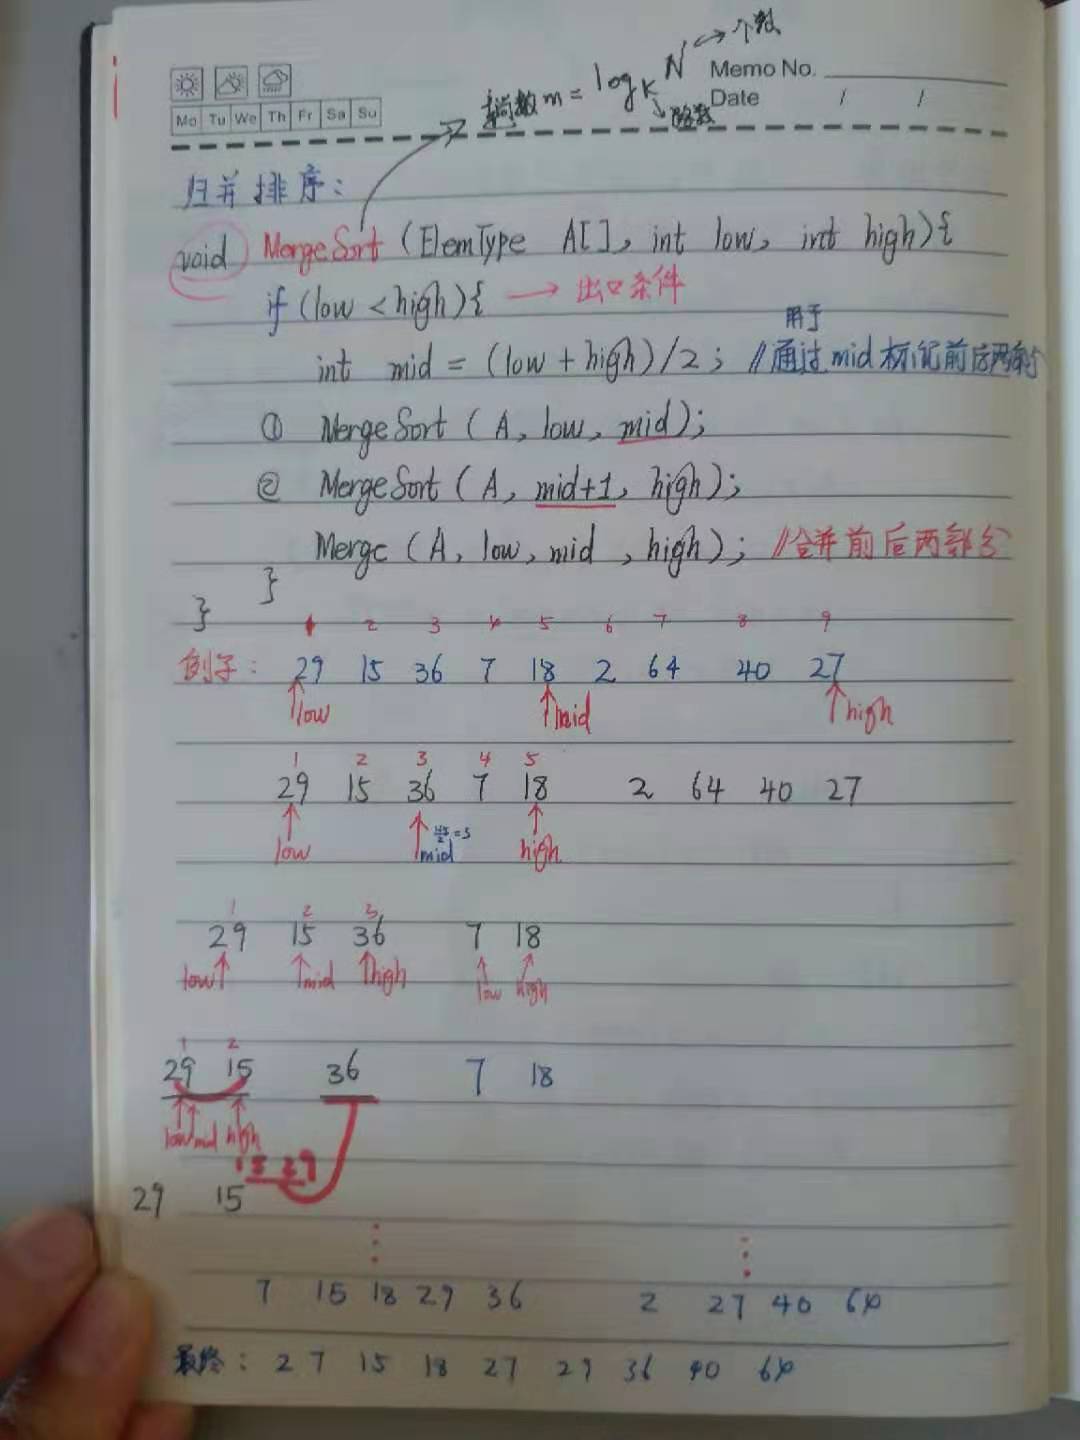 趟数m = log_K N → 个数
→ 路数
Memo No.
Date / /
Mo Tu We Th Fr Sa Su
归并排序：
void MergeSort (ElemType A[], int low, int high){
if (low < high){ → 出口条件
用于
int mid = (low + high)/2; //通过mid标记前后两部分
① MergeSort (A, low, mid);
② MergeSort (A, mid+1, high);
Merge (A, low, mid, high); //合并前后两部分
}
}
1 2 3 4 5 6 7 8 9
例子： 29 15 36 7 18 2 64 40 27
low mid high
1 2 3 4 5
29 15 36 7 18 2 64 40 27
low mid high
1 2 3
29 15 36 7 18
low mid high low high
1 2
29 15 36 7 18
low mid high
15 29
29 15
7 15 18 29 36 2 27 40 64
最终： 2 7 15 18 27 29 36 40 64